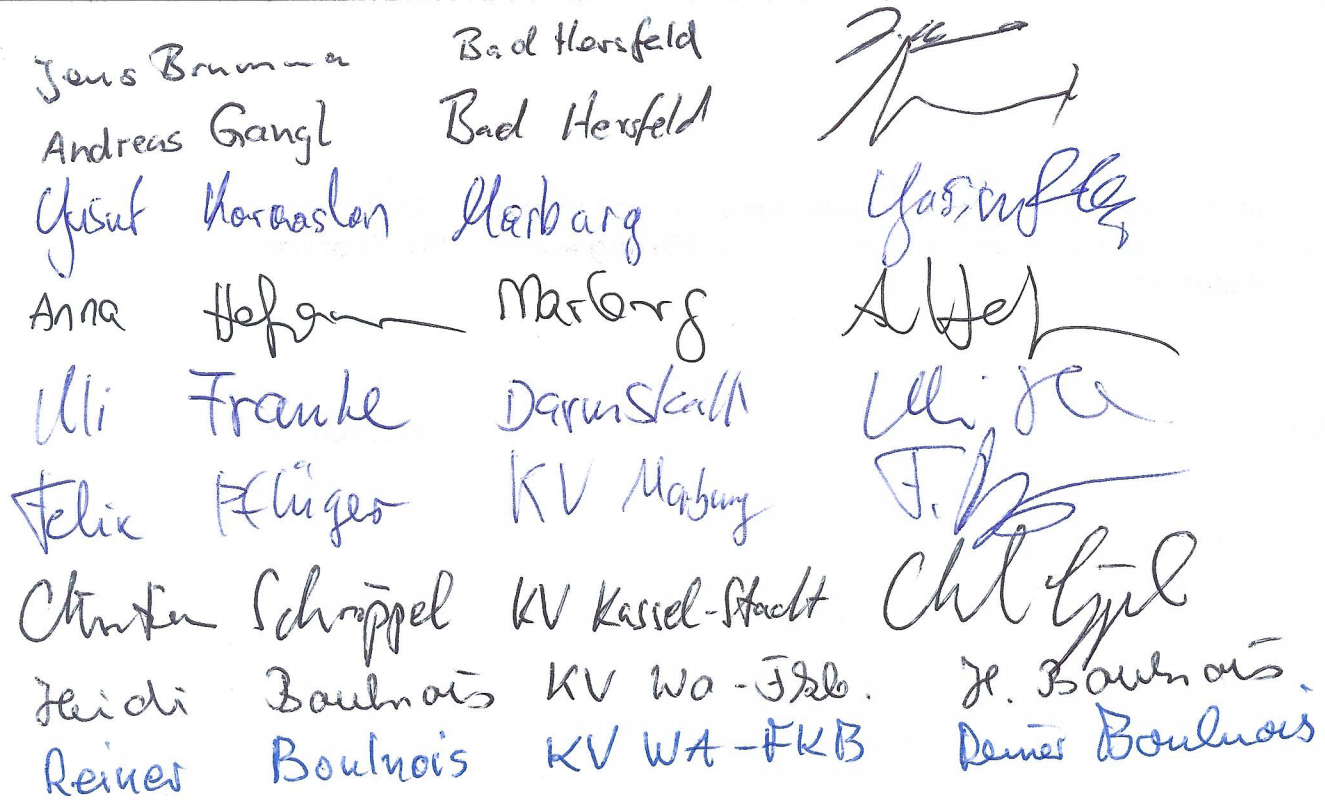 Jens Brumma Bad Hersfeld
Andreas Gangl Bad Hersfeld
Yusuf Karaaslan Marburg
Anna Hofmann Marburg A Hof
Uli Franke Darmstadt Uli
Felix Pflüger KV Marburg F.
Christian Schnöppel KV Kassel-Stadt
Heidi Boulnois KV Wa-Fkb. H. Boulnois
Reiner Boulnois KV WA-FKB Reiner Boulnois